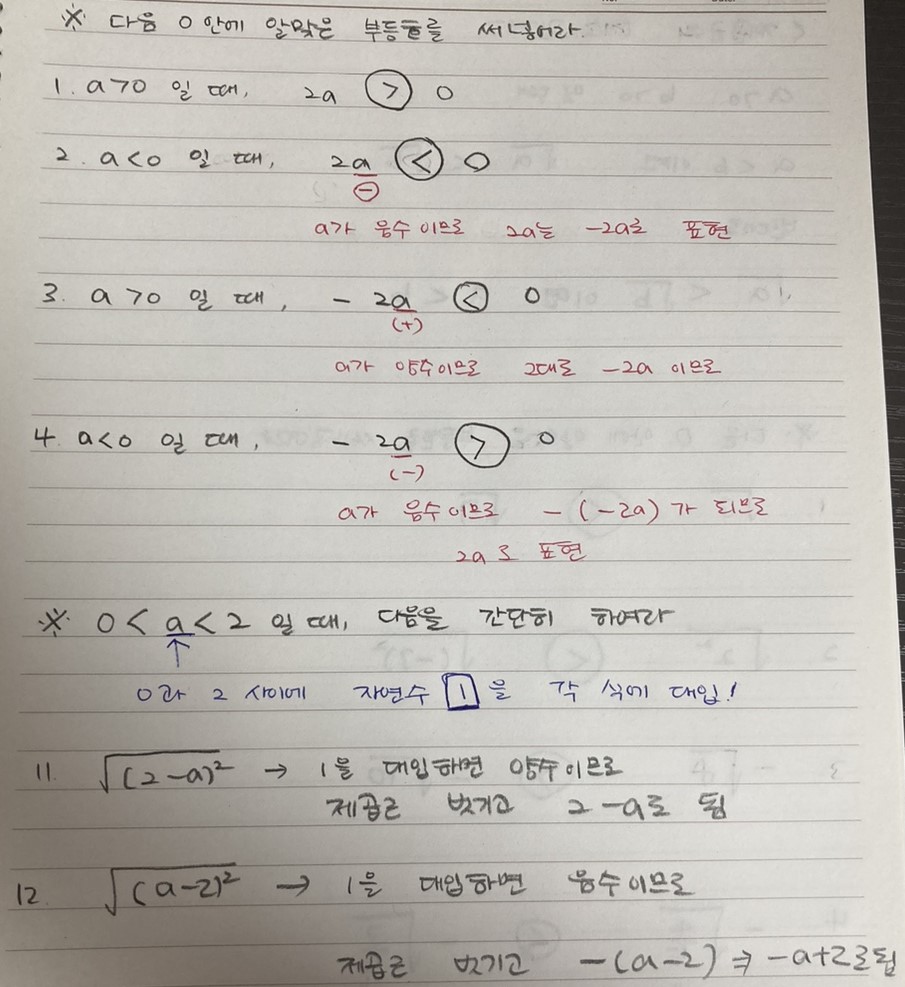 ※ 다음 O 안에 알맞은 부등호를 써넣어라.
1. a>0 일 때, 2a > 0
2. a<0 일 때, 2a < 0
-
a가 음수 이므로 2a는 -2a로 표현
3. a>0 일 때, - 2a < 0
(+)
a가 양수이므로 그대로 -2a 이므로
4. a<0 일 때, - 2a > 0
(-)
a가 음수이므로 - (-2a) 가 되므로
2a로 표현
※ 0 < a < 2 일 때, 다음을 간단히 하여라
↑
0과 2 사이에 자연수 1 을 각 식에 대입!
11. √(2-a)² → 1을 대입하면 양수이므로
제곱근 벗기고 2-a로 됨
12. √(a-2)² → 1을 대입하면 음수이므로
제곱근 벗기고 -(a-2) ⇒ -a+2로 됨